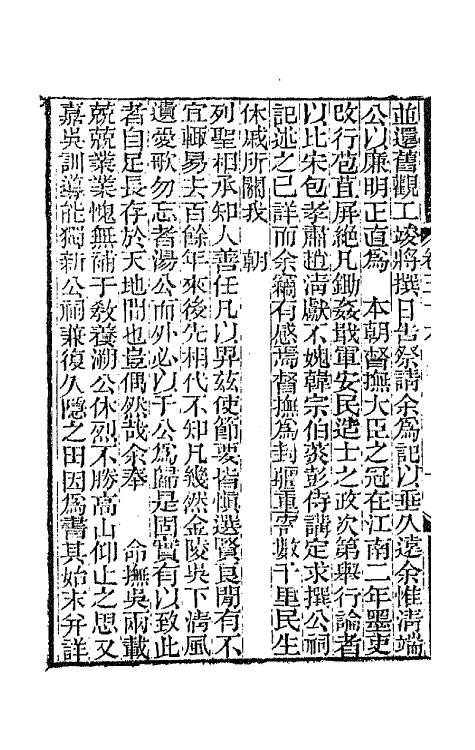 並還舊觀工竣將撰日告祭請余爲記以垂久遠余惟淸端
公以廉明正直爲　本朝督撫大臣之冠在江南二年墨吏
改行苞苴屏絶凡鋤奸戢軍安民造士之政次第舉行論者
以比宋包孝肅趙淸獻不媿韓宗伯菼彭侍講定求撰公祠
記述之已詳而余竊有感焉督撫爲封疆重寄數千里民生
休戚所關我　朝
列聖相承知人善任凡以畀茲使節要皆愼選賢良閒有不
宜輒易去百餘年來後先相代不知凡幾然金陵吳下淸風
遺愛歌勿忘者湯公而外必以于公爲歸是固實有以致此
者自足長存於天地間也豈偶然哉余奉　命撫吳兩載
兢兢業業愧無補于教養溯公休烈不勝高山仰止之思又
嘉吳訓導能獨新公祠兼復久隱之田因爲書其始末幷詳